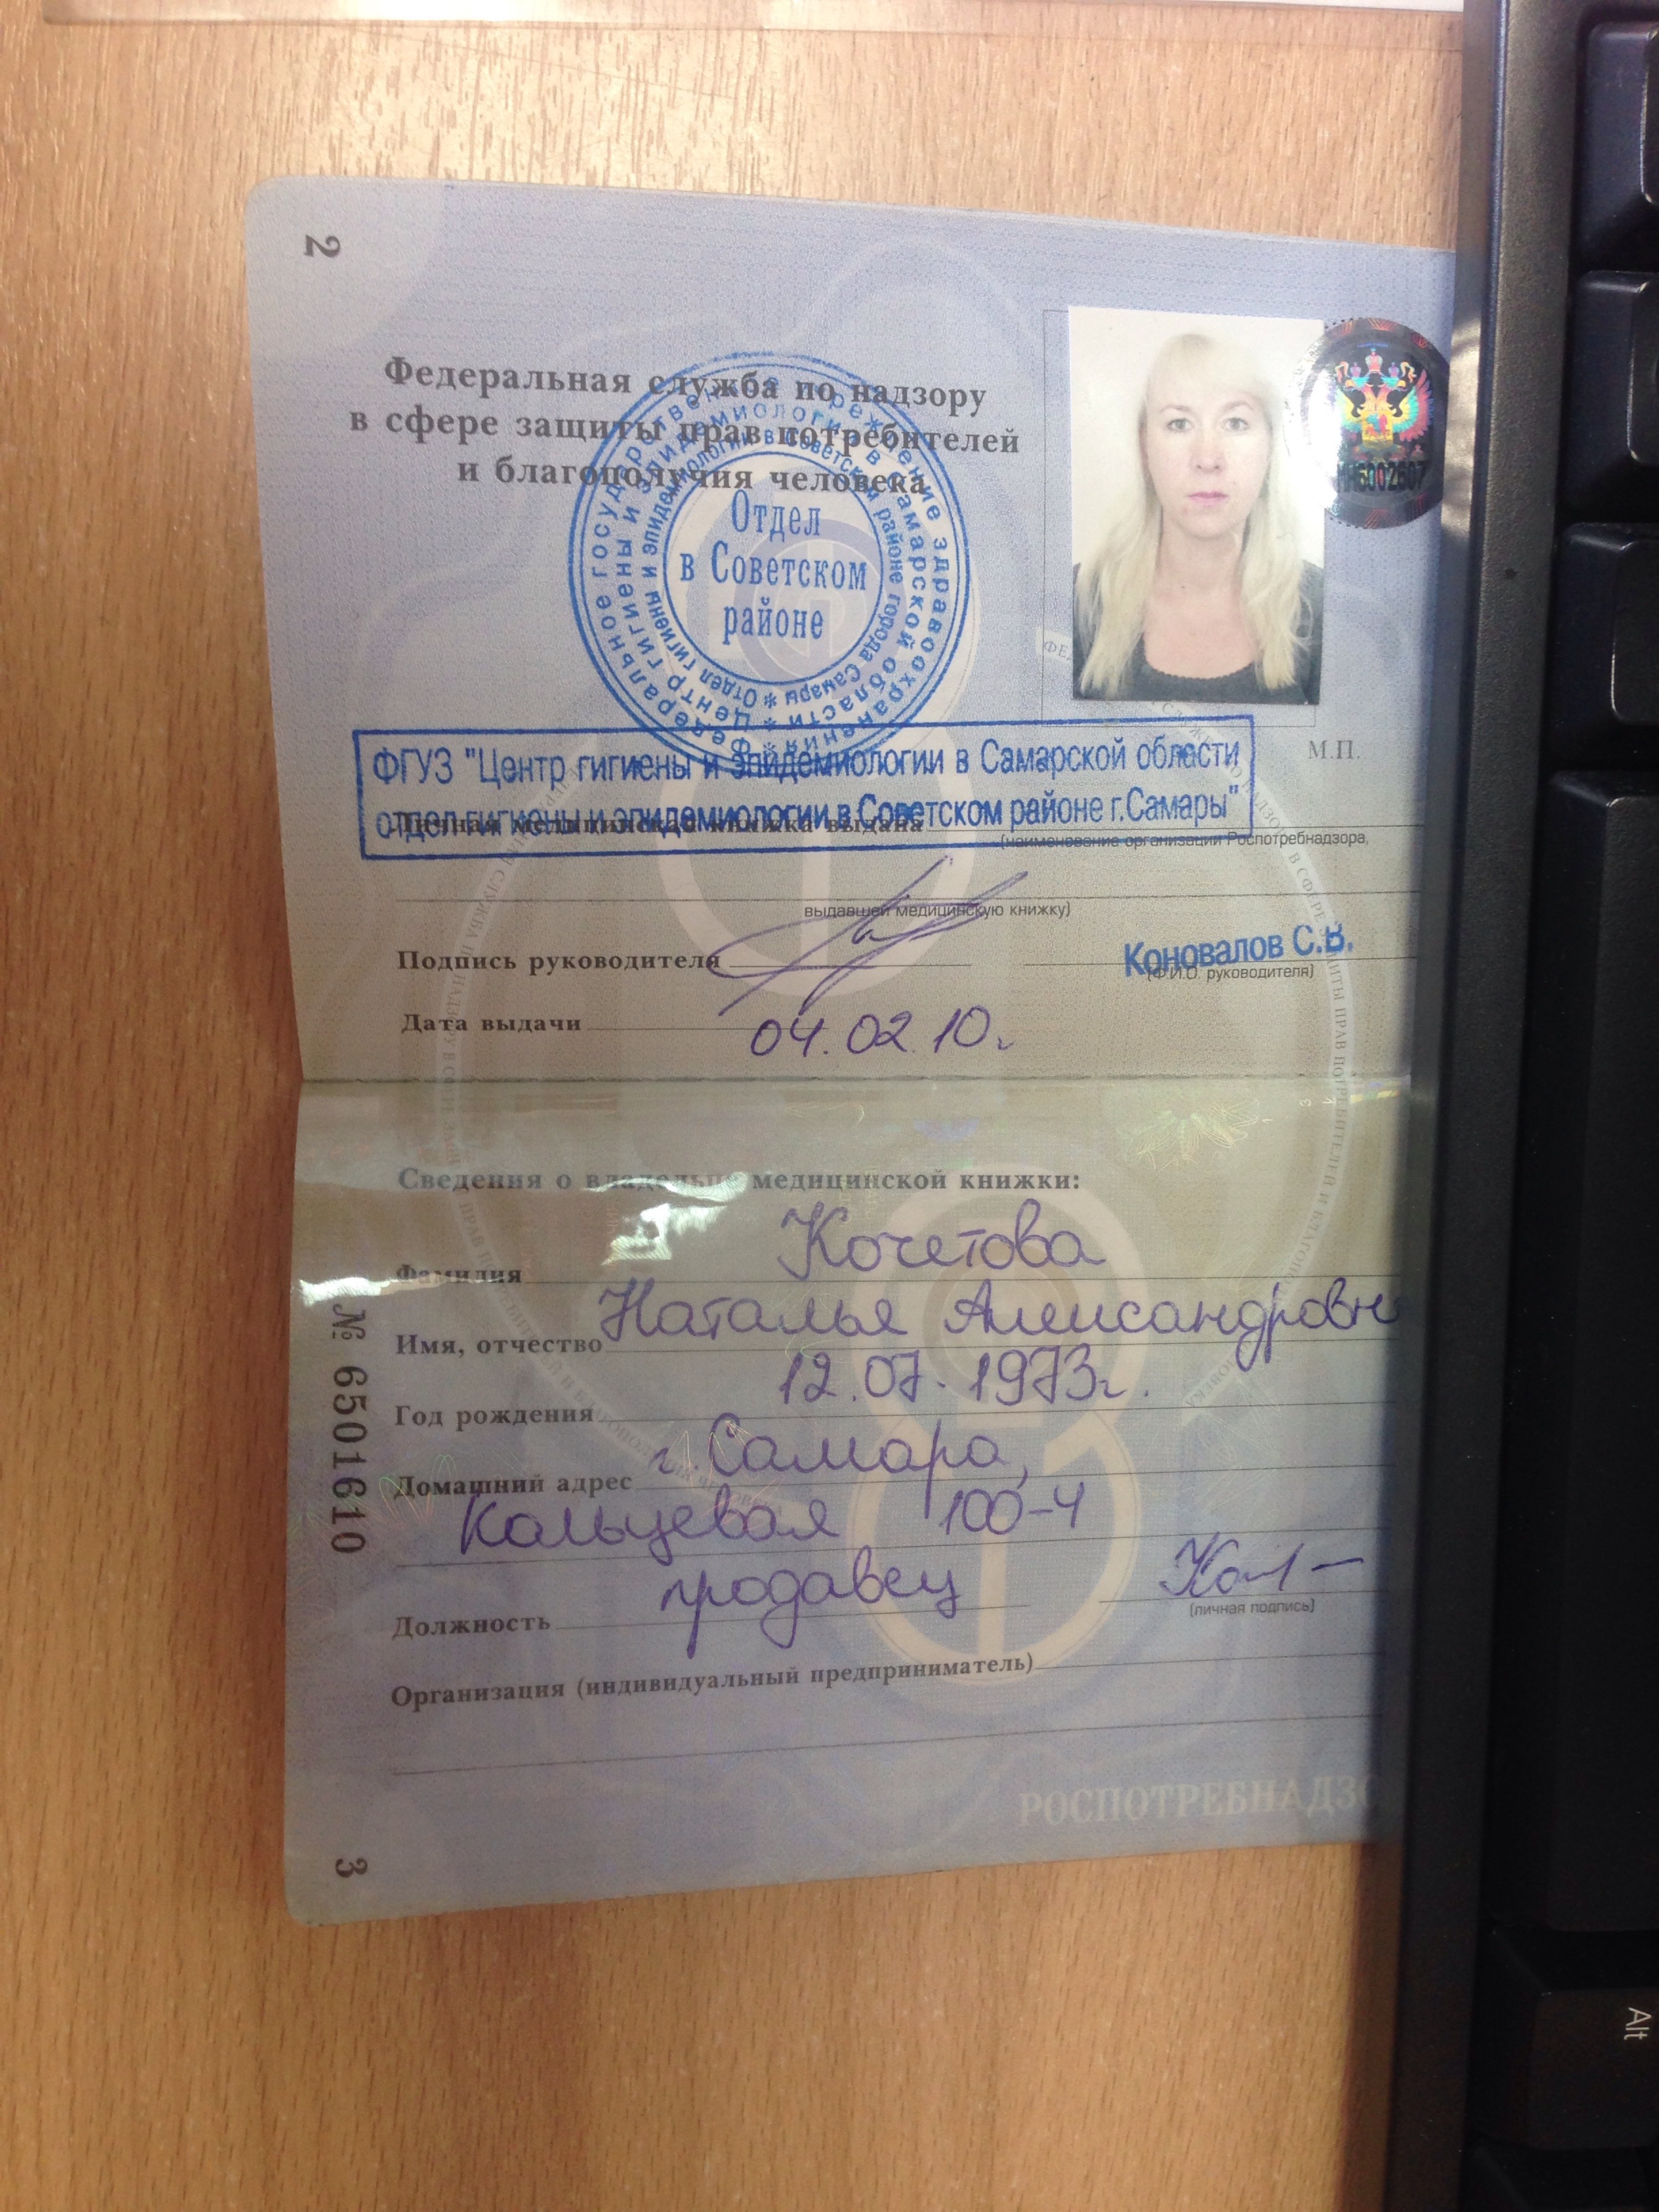 2
Федеральная служба по надзору
в сфере защиты прав потребителей
и благополучия человека
Федеральное государственное учреждение здравоохранения
Центр гигиены и эпидемиологии в Самарской области
Отдел гигиены и эпидемиологии в Советском районе города Самары
Отдел
в Советском
районе
М.П.
ФГУЗ "Центр гигиены и эпидемиологии в Самарской области
отдел гигиены и эпидемиологии в Советском районе г.Самары"
Личная медицинская книжка выдана
(наименование организации Роспотребнадзора,
выдавшей медицинскую книжку)
Подпись руководителя
Коновалов С.В.
(Ф.И.О. руководителя)
Дата выдачи 04.02.10г.
Сведения о владельце медицинской книжки:
Фамилия Кочетова
Имя, отчество Наталья Александровн
Год рождения 12.07.1973г.
Домашний адрес г. Самара,
Кольцевая 100-4
Должность продавец
(личная подпись)
Организация (индивидуальный предприниматель)
РОСПОТРЕБНАДЗО
№ 6501610
3
Alt